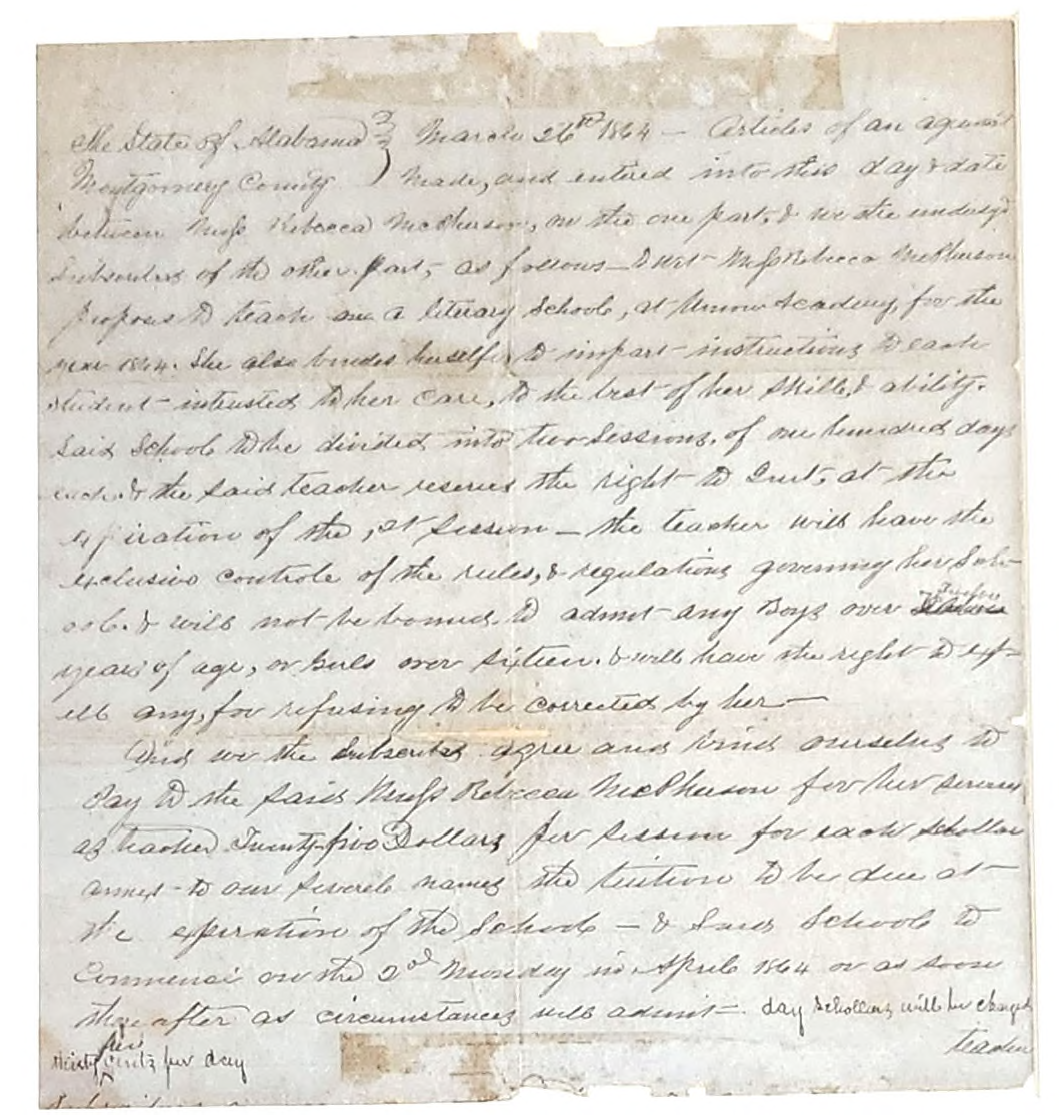 The State of Alabama } March 26th 1864 — Articles of an agrmnt
Montgomery County ) made, and entered into this day & date
between Miss Rebecca McPherson, on the one part, & we the undersgd
Subscribers of the other part, as follows — to wit — Miss Rebecca McPherson
proposes to teach a literary School, at Union Academy, for the
year 1864. She also bindes herselfe, to impart instructions to each
student intrusted to her care, to the best of her skill, & ability.
Said School to be divided into two Sessions, of one hundred days
each. & the said teacher reserves the right to Quit, at the
expiration of the 1st Session — the teacher will have the
exclusive controle of the rules, & regulations governing her Sch-
ool. & will not be bound to admit any Boys over Twelve
years of age, or Girls over sixteen. & will have the right to exp-
ell any, for refusing to be corrected by her —
And we the Subscribers agree and bind ourselves to
Pay to the said Miss Rebecca McPherson for her services
as teacher Twenty-five Dollars per session for each schollar
annexd to our severele names the tuition to be due at
the expiration of the School — & Said School to
Commence on the 2nd Monday in April 1864 or as soon
there after as circumstances will admit — day Schollars will be charged
teacher
thirty five cents per day